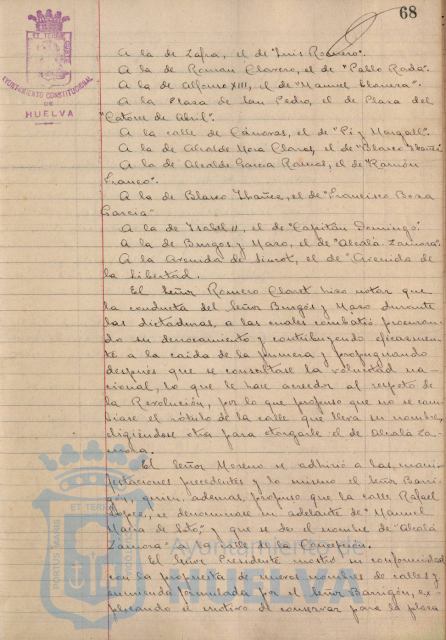 68
AYUNTAMIENTO CONSTITUCIONAL
DE
HUELVA
A la de Zafra, el de "Luis Romero".
A la de Román Clavero, el de "Pablo Rada".
A la de Alfonso XIII, el de "Manuel
A la Plaza de San Pedro, el de Plaza del
"Catorce de Abril".
A la calle de Cánovas, el de "Pí y Margall".
A la de Alcalde Mora Claros, el de "Blasco Ibáñez
A la de Alcalde García Ramos, el de "Ramón
Franco".
A la de Blasco Ibáñez, el de "Francisco Boza
García"
A la de Isabel II, el de "Capitán Domingo".
A la de Burgos y Mazo, el de "Alcalá Zamora".
A la Avenida de Siurot, el de "Avenida de
la Libertad.
El Señor Romero Claret hizo notar que
la conducta del Señor Burgos y Mazo durante
las dictaduras, a las cuales combatió procuran-
do su derrocamiento y contribuyendo eficazmen-
te a la caida de la primera y propugnando
después que se consultase la voluntad na-
cional, lo que le hace acreedor al respeto de
la Revolución, por lo que propuso que no se cam-
biase el rótulo de la calle que lleva su nombre,
eligiéndose otra para otorgarle el de Alcalá Za-
mora.
El Señor Moreno se adhirió a las mani-
festaciones precedentes y lo mismo el Señor Barri-
gón quien, además, propuso que la calle Rafael
López, se denominase en adelante de "Manuel
María de Soto", y que se dé el nombre de "Alcalá
Zamora" a la calle de la Concepción.
El Señor Presidente mostró su conformidad
con la propuesta de nuevos nombres de calles y
enmienda formulada por el Señor Barrigón, ex-
plicando el motivo de conservar para la plaza
Ayuntamiento de
HUELVA